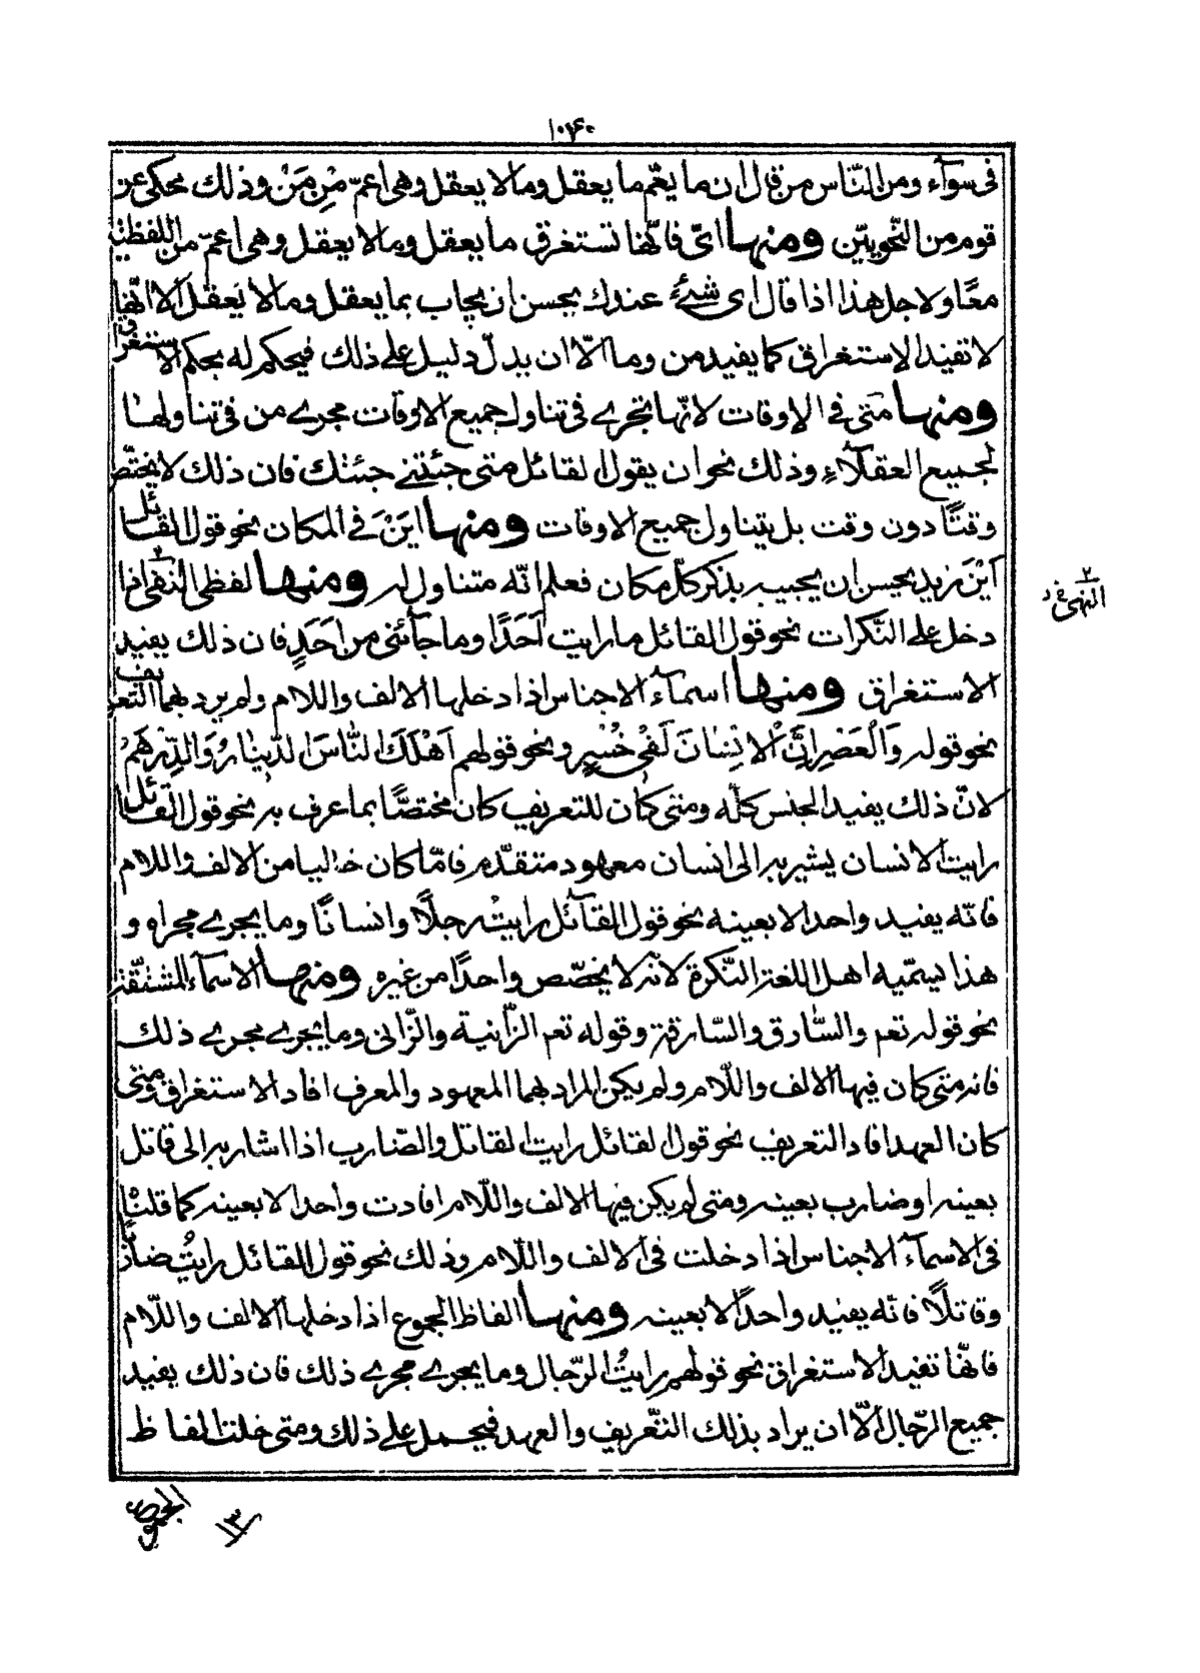 ١٠٤٠
فى سوآء ومن النّاس من قال ان ما يعّم ما يعقل وما لا يعقل وهى اعمّ مِن مَنْ وذلك يحكى عن
قوم من النّحويّين ومنها اىّ فانّها تستغرق ما يعقل وما لا يعقل وهى اعمّ من اللفظتين
معًا ولاجل هذا اذا قال اى شئء عندك يحسن ان يجاب بما يعقل وما لا يَعقل الّا انّها
لا تفيد الاستغراق كما يفيد من وما الّا ان يدلّ دليل على ذلك فيحكم له بحكم الاستغراق
ومنها مَتى فى الاوقات لانّها تجرى فى تناول جميع الاوقات مجرى من فى تناولها
لجميع العقلآء وذلك نحو ان يقول القائل متى جئتنى جئتك فان ذلك لا يختّص
وقتًا دون وقت بل يتناول جميع الاوقات ومنها اينَ فى المكان نحو قول القائل
اَيْنَ زيد يحسن ان يجيب بذكر كلّ مكان فعلم انّه متناول له ومنها لفظى النفى اذا
٢ النهى فى د
دخل على النّكرات نحو قول القائل ما رايت اَحَدًا وما جآئنى من اَحَدٍ فان ذلك يفيد
الاستغراق ومنها اسمآء الاجناس اذا دخلها الالف واللام ولم يرد بهما التعريف
نحو قوله وَالْعَصْرِ اِنَّ الْاِنْسٰانَ لَفى خُسْرٍ ونحو قولهم اَهْلَكَ النّاسَ الدّينارُ وَالدِّرْهَمُ
لانّ ذلك يفيد الجنس كلّه ومتى كان للتعريف كان مختصًّا بما عرف به نحو قول القائل
رايت الانسان يشير به الى انسان معهود متقدّم فامّا كان خاليا من الالف واللام
فانّه يفيد واحدا لا بعينه نحو قول القآئل رايتُ رجلًا وانسانًا وما يجرى مجراه و
هذا يسمّيه اهل اللغة النّكرة لانّه لا يخصّص واحدًا من غيره ومنها الاسمآء المشتقّة
نحو قوله تعم والسّارق والسّارقة وقوله تعم الزّانية والزّانى وما يجرى مجرى ذلك
فانه متى كان فيها الالف واللّام ولم يكن المراد بهما المعهود والمعرف افاد الاستغراق ومتى
كان العهد افاد التعريف نحو قول القائل رايت القاتل والضّارب اذا اشار به الى قاتل
بعينه او ضارب بعينه ومتى لم يكن فيها الالف واللّام افادت واحدا لا بعينه كما قلنا
فى الاسمآء الاجناس اذا دخلت فى الالف واللّام وذلك نحو قول القائل رايتُ ضاربًا
وقاتلًا فانّه يفيد واحدًا لا بعينه ومنها الفاظ الجموع اذا دخلها الالف واللّام
فانّها تفيد الاستغراق نحو قولهم رايتُ الرّجال وما يجرى مجرى ذلك فان ذلك يفيد
جميع الرّجال الّا ان يراد بذلك التّعريف والعهد فيحمل على ذلك ومتى خلت الفاظ
١٣
الجموع